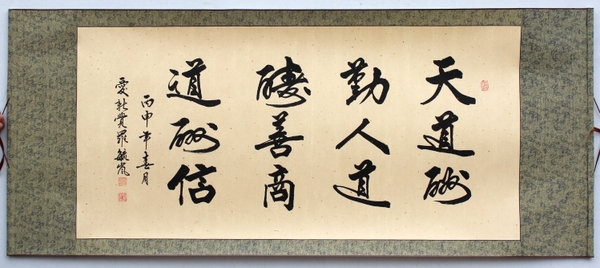 天道酬
勤人道
醻善商
道酬信
丙申年喜月
愛新覺羅毓嵐